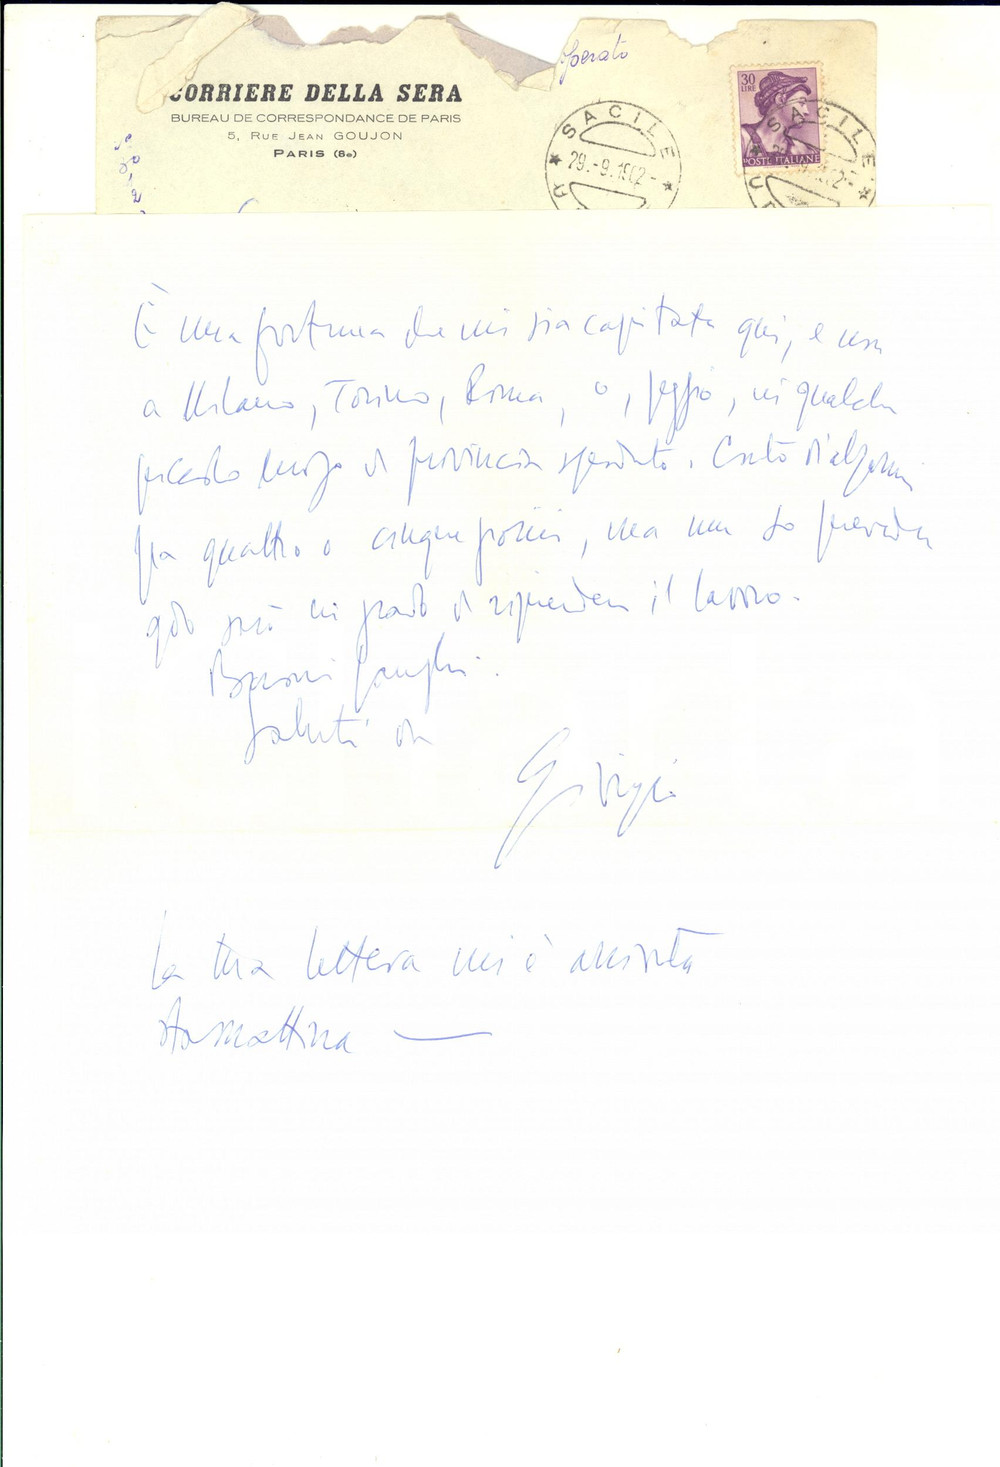 CORRIERE DELLA SERA
BUREAU DE CORRESPONDANCE DE PARIS
5, Rue Jean GOUJON
PARIS (8e)
SACILE
29.-9.1962-
30
LIRE
POSTE ITALIANE
SACILE
È una fortuna che mi sia capitata qui, e non
a Milano, Torino, Roma, o, peggio, in qualche
piccolo luogo di provincia sperduto. Conto d'alzarmi
fra quattro o cinque giorni, ma non so prevedere
qdo sarò in grado di riprendere il lavoro.
Bacioni famiglia.
Saluti da
Giorgio
La tua lettera mi è arrivata
stamattina